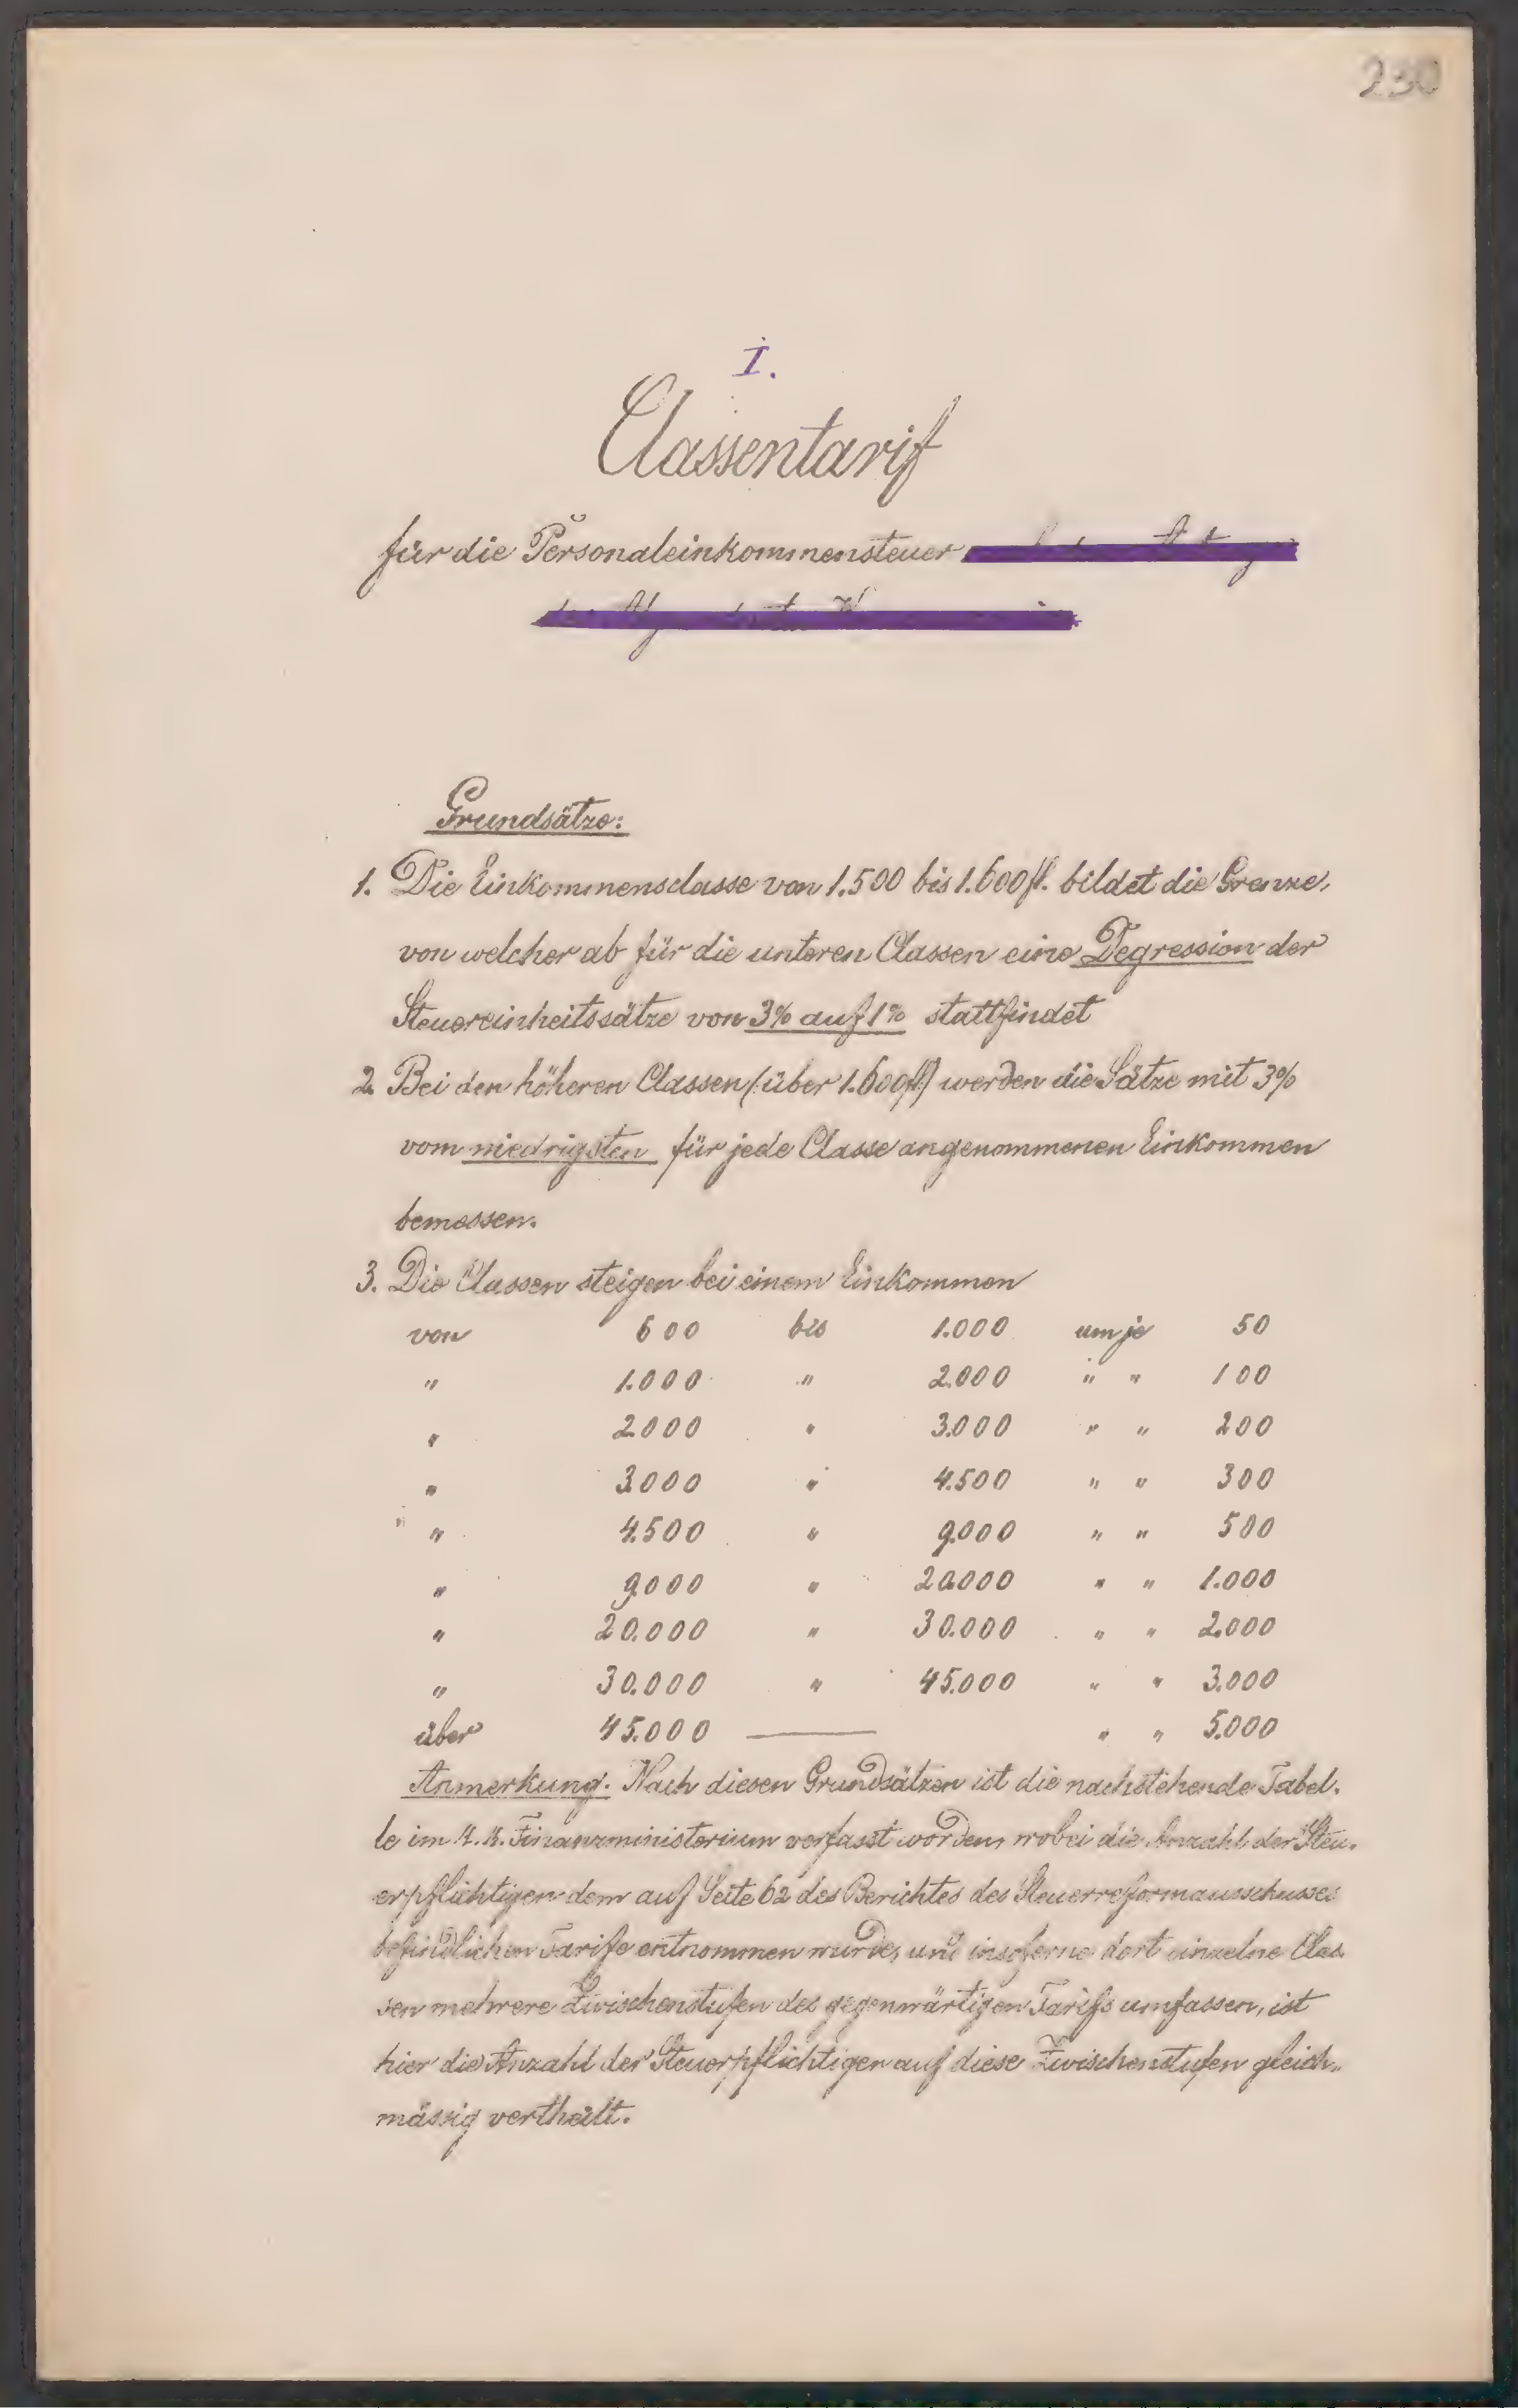 230
I.
Classentarif
für die Personaleinkommensteuer
Grundsätze:
1. Die Einkommensclasse von 1.500 bis 1.600 fl. bildet die Grenze,
von welcher ab für die unteren Classen eine Degression der
Steuereinheitssätze von 3% auf 1% stattfindet
2. Bei den höheren Classen (:über 1.600 fl:) werden die Sätze mit 3%
vom niedrigsten für jede Classe angenommenen Einkommen
bemessen.
3. Die Classen steigen bei einem Einkommen
von 600 bis 1.000 um je 50
" 1.000 " 2.000 " " 100
" 2.000 " 3.000 " " 200
" 3.000 " 4.500 " " 300
" 4.500 " 9.000 " " 500
" 9.000 " 20.000 " " 1.000
" 20.000 " 30.000 " " 2.000
" 30.000 " 45.000 " " 3.000
über 45.000 — " " 5.000
Anmerkung. Nach diesen Grundsätzen ist die nachstehende Tabel-
le im k.k. Finanzministerium verfasst worden, wobei die Anzahl der Steu-
erpflichtigen dem auf Seite 62 des Berichtes des Steuerreformausschusses
befindlichen Tarife entnommen wurde, und insoferne dort einzelne Clas
sen mehrere Zwischenstufen des gegenwärtigen Tarifs umfassen, ist
hier die Anzahl der Steuerpflichtigen auf diese Zwischenstufen gleich-
mässig vertheilt.